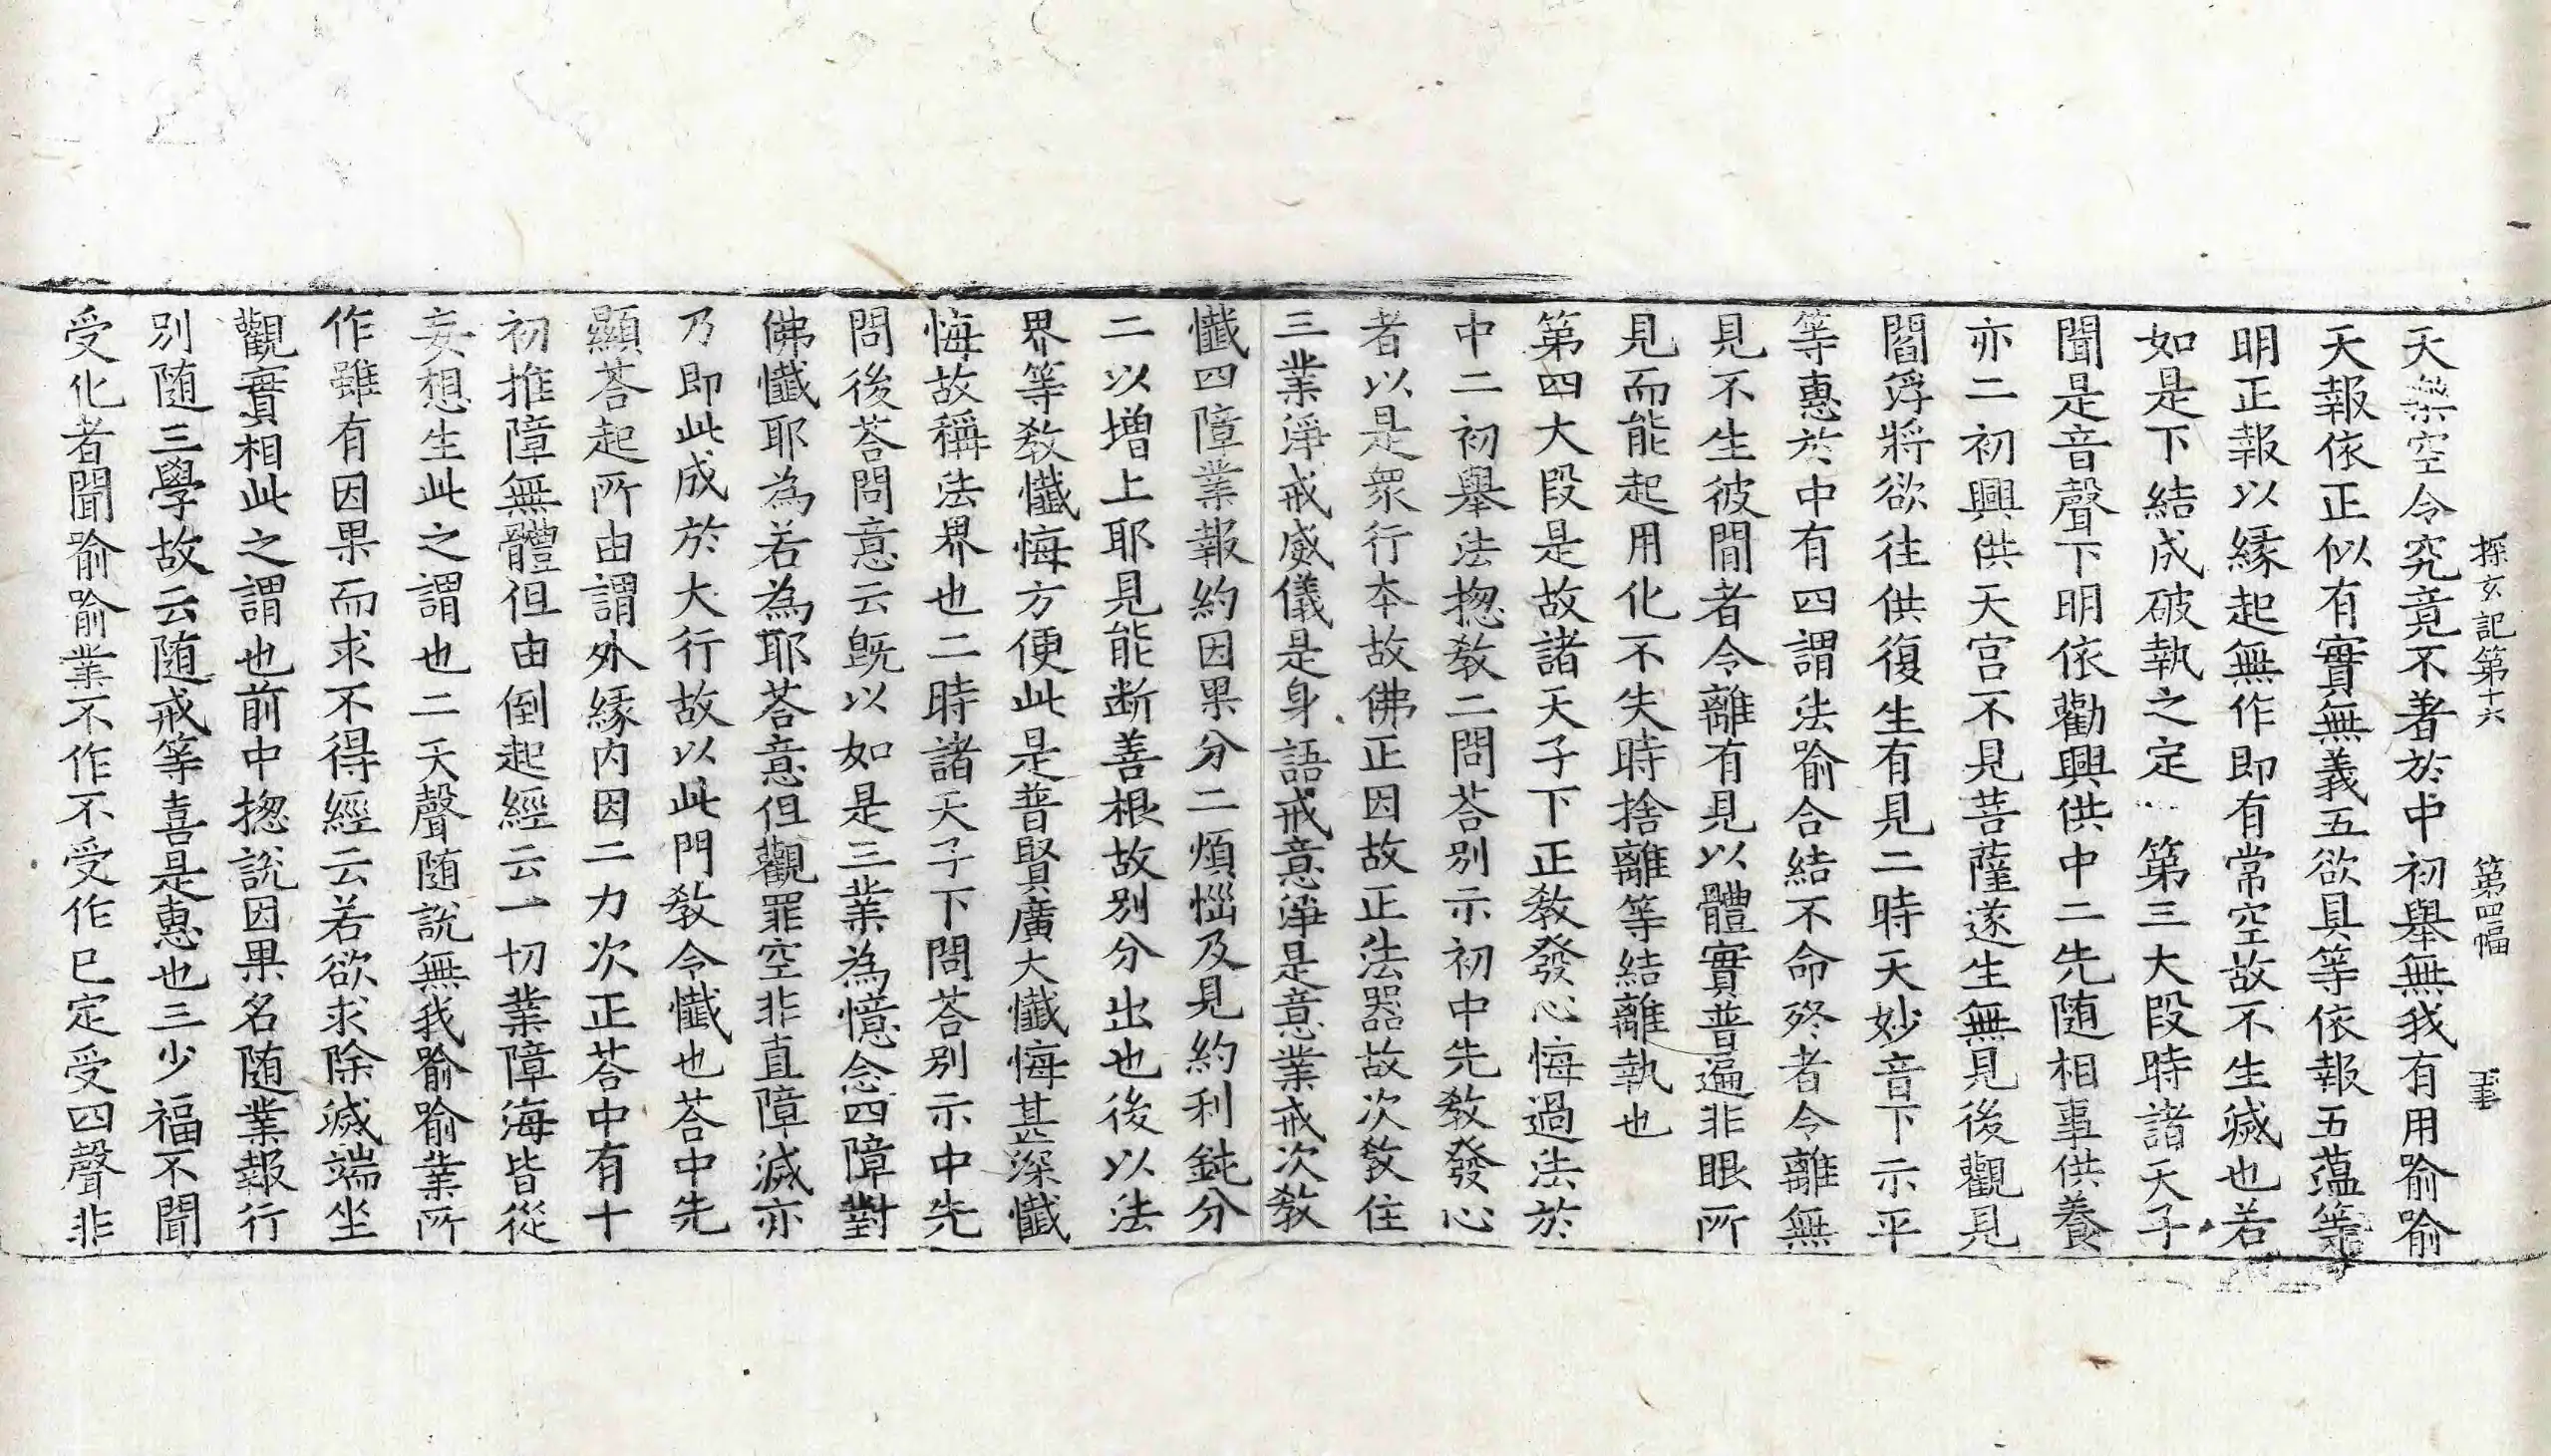 探玄記第十六 第四幅
天樂空令究竟不著於中初舉無我有用喻喻
天報依正似有實無義五欲具等依報五蘊等
明正報以緣起無作即有常空故不生滅也若
如是下結成破執之定 第三大段時諸天子
聞是音聲下明依勸興供中二先随相事供養
亦二初興供天宮不見菩薩遂生無見後觀見
閻浮將欲往供復生有見二時天妙音下示平
等惠於中有四謂法喻合結不命終者令離無
見不生彼閒者令離有見以體實普遍非眼所
見而能起用化不失時捨離等結離執也
第四大段是故諸天子下正教發心悔過法於
中二初舉法揔教二問荅別示初中先教發心
者以是衆行本故佛正因故正法器故次教住
三業淨戒威儀是身語戒意淨是意業戒次教
懺四障業報約因果分二煩惱及見約利鈍分
二以增上耶見能断善根故別分出也後以法
界等教懺悔方便此是普賢廣大懺悔甚深懺
悔故稱法界也二時諸天子下問荅別示中先
問後荅問意云旣以如是三業為憶念四障對
佛懺耶為若為耶荅意但觀罪空非直障滅亦
乃即此成於大行故以此門教令懺也荅中先
顯荅起所由謂外緣内因二力次正荅中有十
初推障無體但由倒起經云一切業障海皆從
妄想生此之謂也二天聲随說無我喻喻業所
作雖有因果而求不得經云若欲求除滅端坐
觀實相此之謂也前中揔說因果名随業報行
別随三學故云随戒等喜是惠也三少福不聞
受化者聞喻喻業不作不受作已定受四聲非